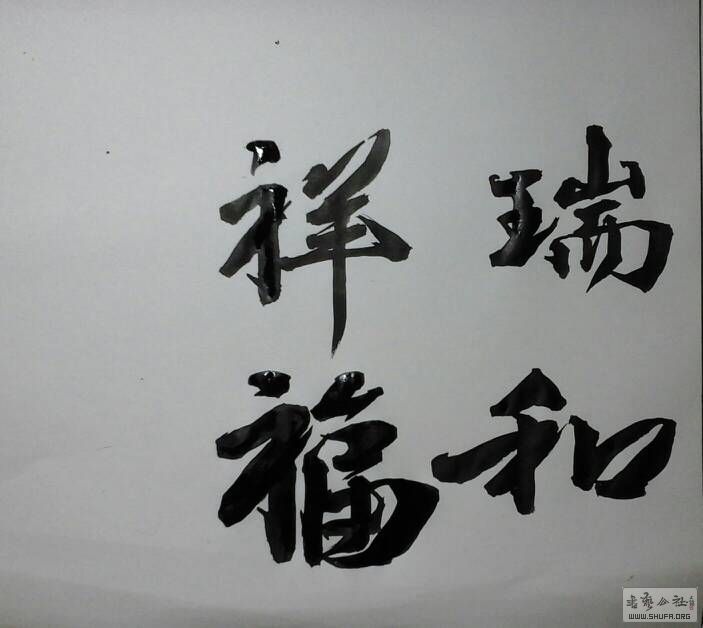 瑞和
祥福
书艺公社
WWW.SHUFA.ORG